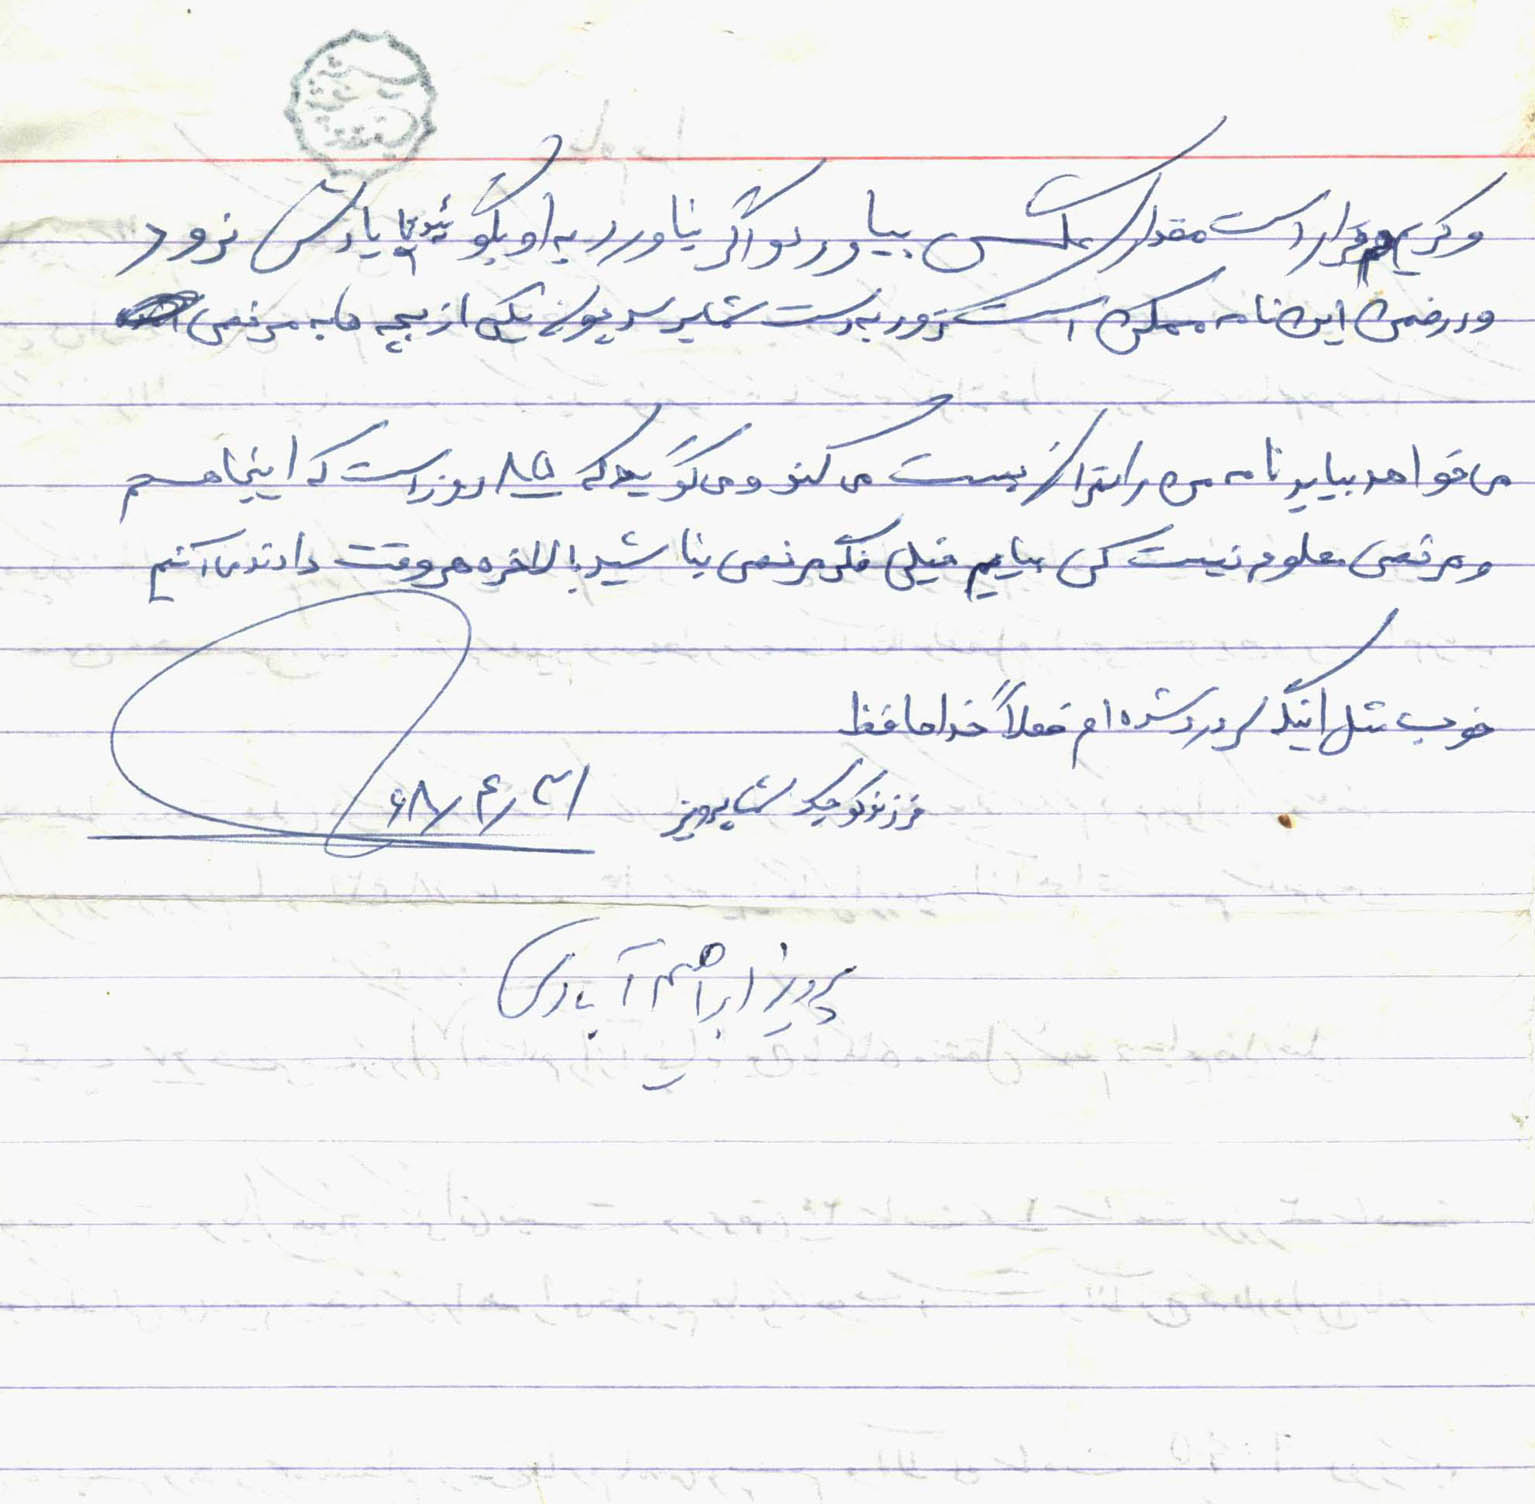 و کریم قرار است مقداری عکس بیاورد و اگر نیاورد به او بگوئید تا یادش نرود
و در ضمن این نامه ممکن است زود به دست شما برسد چون یکی از بچه ها به مرخصی
می خواهد بیاید نامه من را بتدا پست می کند و می گوید که ۸۵ روز است که اینجا هستم
و مرخصی معلوم نیست کی بیایم خیلی فکر مرخصی نباشید بالاخره هر وقت دادند می آئیم
خوب مثل اینکه سردرد شده ام فعلاً خداحافظ
فرزند کوچک شما پرویز ۶۸/۴/۳۱
پرویز ابراهیم آبادی